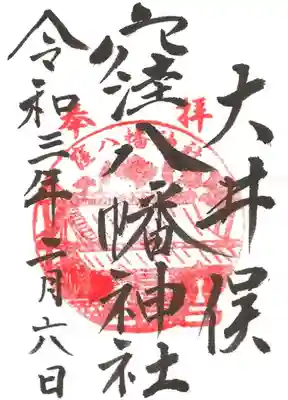 大井俣
窪八幡神社
令和三年二月六日
奉拝